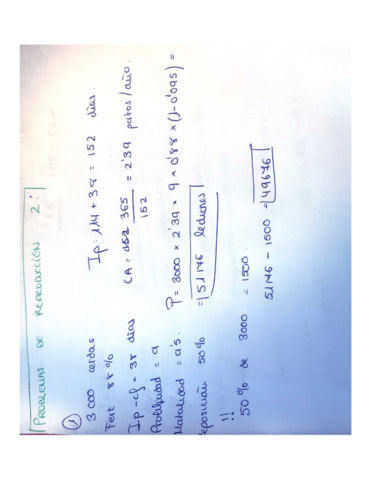 PROBLEMAS DE REPRODUCCIÓN 2
①
3000 cerdas
Fert 88%
Ip-cf = 38 días
Prolificidad = 9
Mortalidad = 9'5.
reposición 50%
!!
50% de 3000 = 1500.
Ip: 114 + 38 = 152 días.
CA = 365 / 152 = 2'39 partos/año.
P = 3000 x 2'39 x 9 x 0'88 x (1-0'095) =
= 51176 lechones
51176 - 1500 = 49676